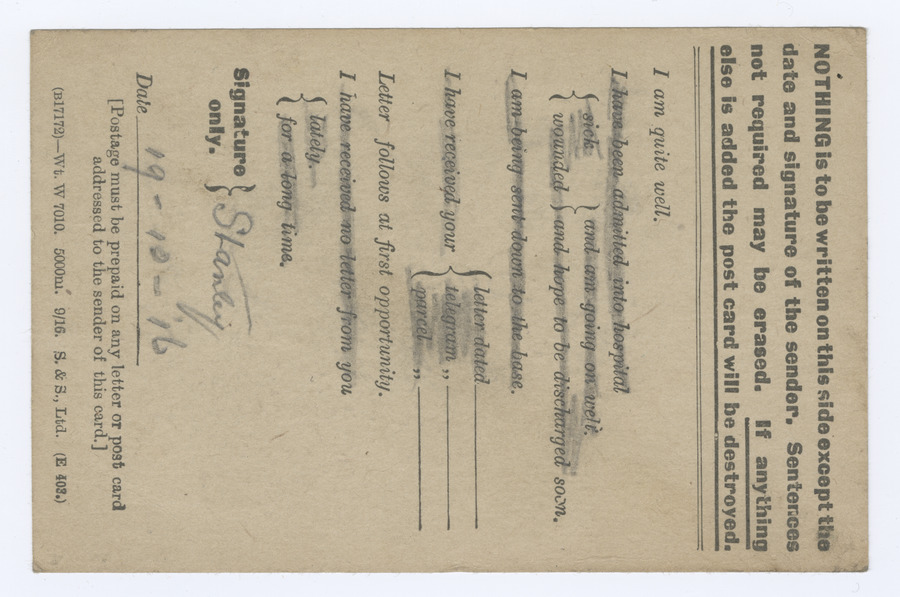 NOTHING is to be written on this side except the
date and signature of the sender. Sentences
not required may be erased. If anything
else is added the post card will be destroyed.
I am quite well.
I have been admitted into hospital
{ sick } and am going on well.
{ wounded } and hope to be discharged soon.
I am being sent down to the base.
I have received your { letter dated
telegram ,,
parcel ,,
Letter follows at first opportunity.
I have received no letter from you
{ lately
for a long time.
Signature
only. } Stanley
Date 19-10-16
[Postage must be prepaid on any letter or post card
addressed to the sender of this card.]
(B17172)—Wt. W 7010. 5000m. 9/16. S. & S., Ltd. (E 403.)